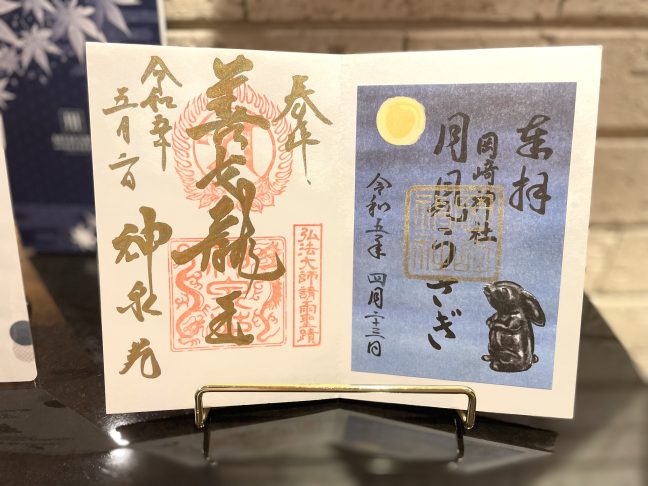 奉拝
岡崎神社
月見うさぎ
令和五年 四月二十三日
奉拝
善女龍王
弘法大師請雨聖蹟
令和五年
五月六日
神泉苑